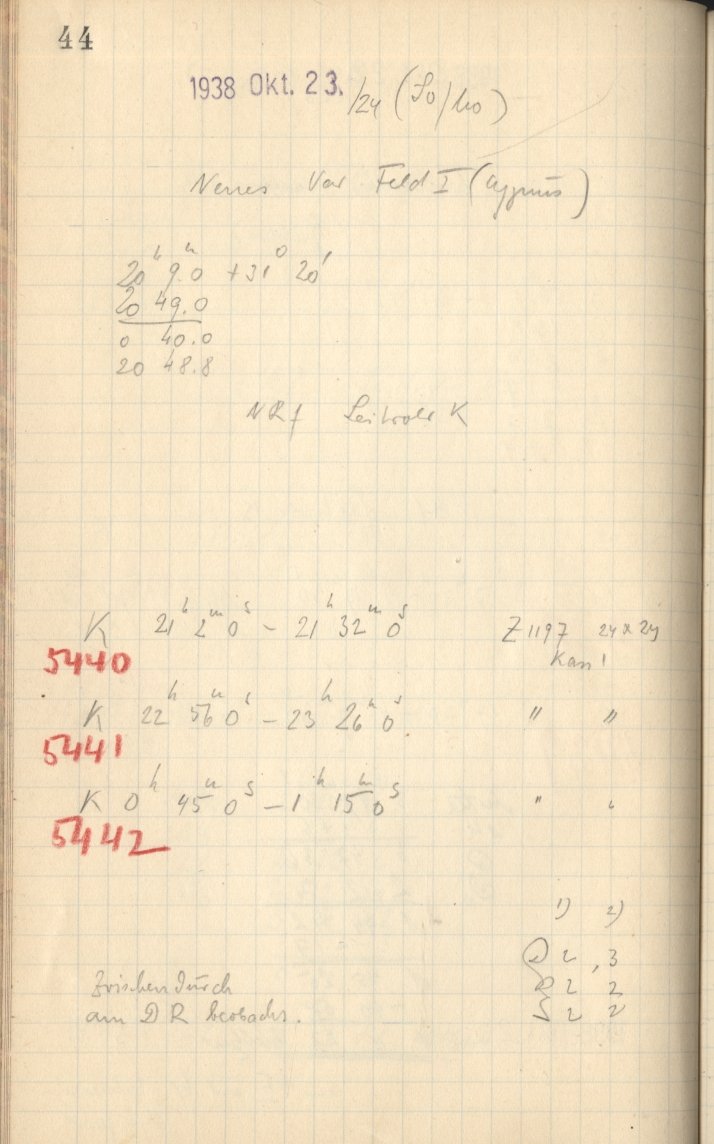 44
1938 Okt. 23. /24 (So/Mo)
Neues Var Feld I (Cygnus)
20ʰ 9.0ᵐ +31° 20'
20 49.0
0 40.0
20 48.8
NRf Leitrohr K
K 21ʰ 2ᵐ 0ˢ – 21ʰ 32ᵐ 0ˢ Z 1197 24x24
5440 Kass!
K 22ʰ 56ᵐ 0ˢ – 23ʰ 26ᵐ 0ˢ " "
5441
K 0ʰ 45ᵐ 0ˢ – 1ʰ 15ᵐ 0ˢ " "
5442
1) 2)
D 2, 3
Zwischendurch R 2 2
am D R beobacht. S 2 2